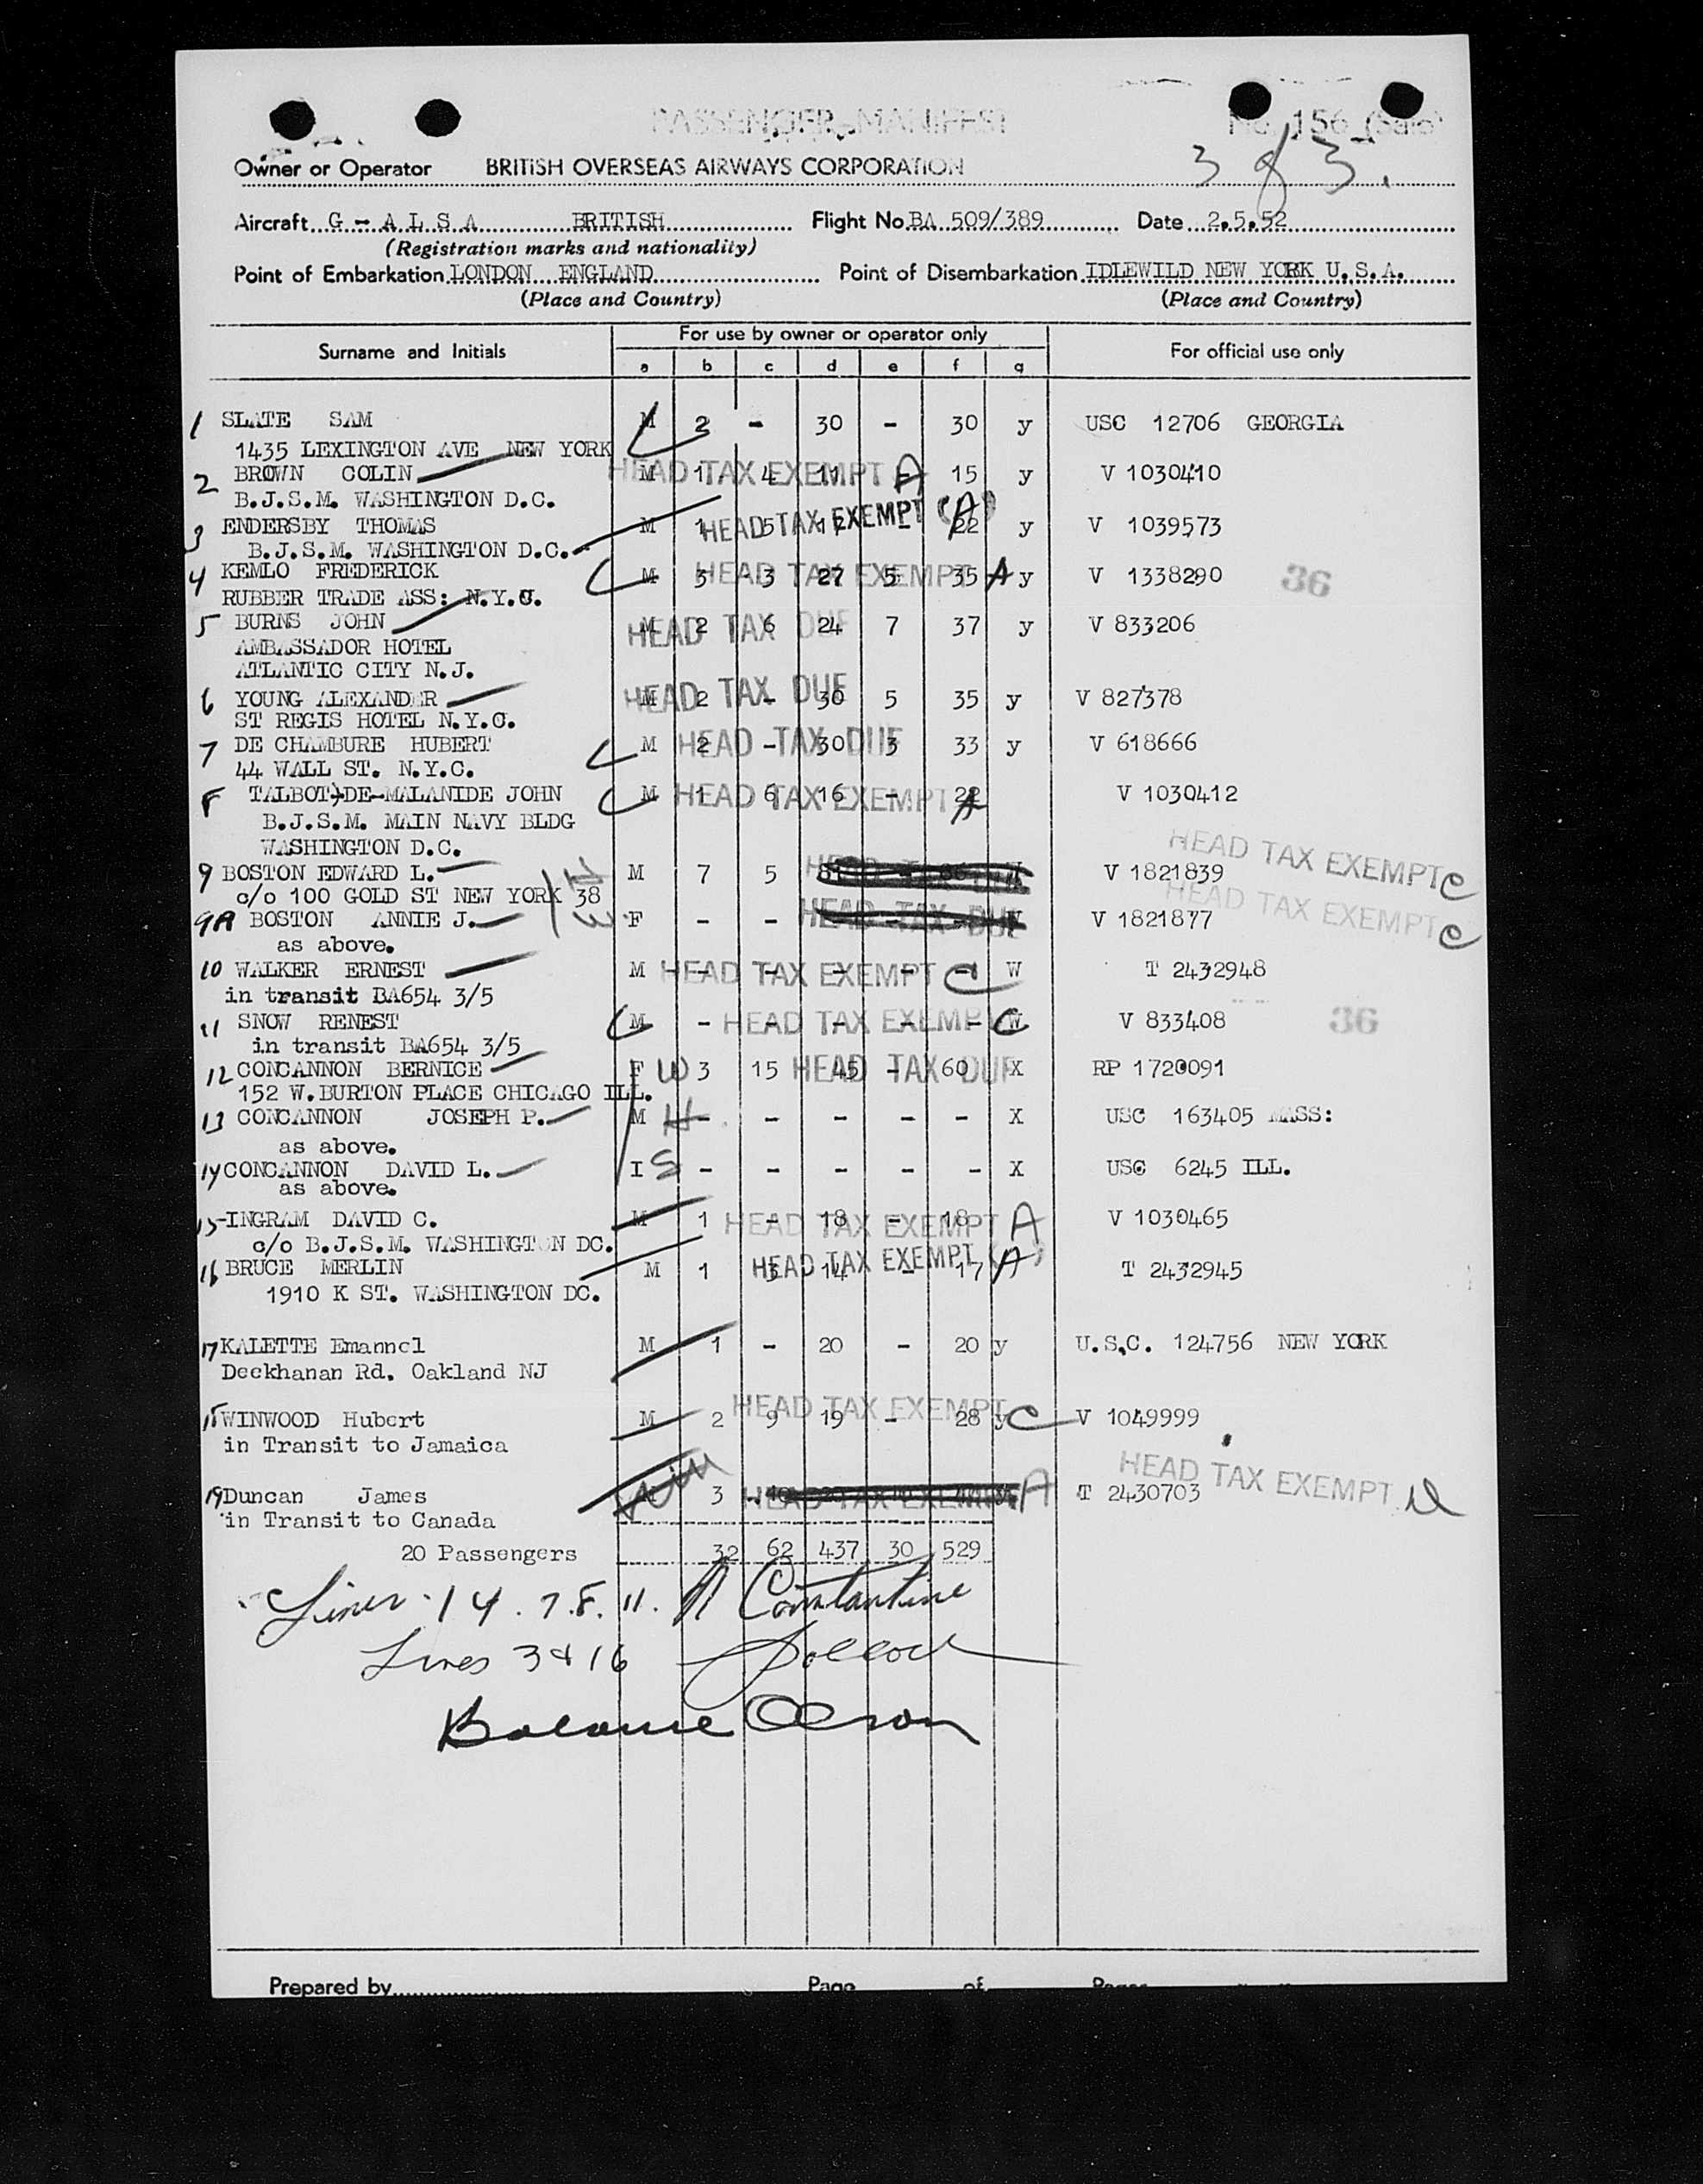 PASSENGER MANIFEST
No. 156 (Sale)
3 of 3.
Owner or Operator BRITISH OVERSEAS AIRWAYS CORPORATION
Aircraft G - A L S A BRITISH Flight No. BA 509/389 Date 2.5.52
(Registration marks and nationality)
Point of Embarkation LONDON ENGLAND Point of Disembarkation IDLEWILD NEW YORK U.S.A.
(Place and Country) (Place and Country)
Surname and Initials For use by owner or operator only For official use only
a b c d e f g
1 SLATE SAM M 2 - 30 - 30 y USC 12706 GEORGIA
1435 LEXINGTON AVE NEW YORK
2 BROWN COLIN M 1 4 11 - 15 y V 1030410
HEAD TAX EXEMPT A
B.J.S.M. WASHINGTON D.C.
3 ENDERSBY THOMAS M 1 5 17 - 22 y V 1039573
HEAD TAX EXEMPT (A)
B.J.S.M. WASHINGTON D.C.
4 KEMLO FREDERICK M 3 3 27 5 35 y V 1338290 36
HEAD TAX EXEMPT A
RUBBER TRADE ASS: N.Y.C.
5 BURNS JOHN M 2 6 24 7 37 y V 833206
HEAD TAX DUE
AMBASSADOR HOTEL
ATLANTIC CITY N.J.
6 YOUNG ALEXANDER M 2 - 30 5 35 y V 827378
HEAD TAX DUE
ST REGIS HOTEL N.Y.C.
7 DE CHAMBURE HUBERT M 2 - 30 3 33 y V 618666
HEAD TAX DUE
44 WALL ST. N.Y.C.
8 TALBOT-DE-MALANIDE JOHN M 1 6 16 - 22 V 1030412
HEAD TAX EXEMPT A
B.J.S.M. MAIN NAVY BLDG
WASHINGTON D.C.
9 BOSTON EDWARD L. M 7 5 V 1821839
HEAD TAX EXEMPT C
c/o 100 GOLD ST NEW YORK 38
9A BOSTON ANNIE J. F - - V 1821877
HEAD TAX DUE
HEAD TAX EXEMPT C
as above.
10 WALKER ERNEST M - - - - - W T 2432948
HEAD TAX EXEMPT C
in transit BA654 3/5
11 SNOW RENEST M - - - - - W V 833408 36
HEAD TAX EXEMPT C
in transit BA654 3/5
12 CONCANNON BERNICE F W 3 15 45 - 60 X RP 1720091
HEAD TAX DUE
152 W. BURTON PLACE CHICAGO ILL.
13 CONCANNON JOSEPH P. M H - - - - - X USC 163405 MASS:
as above.
14 CONCANNON DAVID L. I S - - - - - X USC 6245 ILL.
as above.
15 INGRAM DAVID C. M 1 - 18 - 18 V 1030465
HEAD TAX EXEMPT A
c/o B.J.S.M. WASHINGTON DC.
16 BRUCE MERLIN M 1 3 14 - 17 T 2432945
HEAD TAX EXEMPT (A)
1910 K ST. WASHINGTON DC.
17 KALETTE Emannel M 1 - 20 - 20 y U.S.C. 124756 NEW YORK
Deckhanan Rd. Oakland NJ
18 WINWOOD Hubert M 2 9 19 - 28 y V 1049999
HEAD TAX EXEMPT C
in Transit to Jamaica
19 Duncan James 3 A T 2430703
HEAD TAX EXEMPT
in Transit to Canada
20 Passengers 32 62 437 30 529
Lines 1 4. 7. 8. 11. Constantine
Lines 3 & 16 Pollock
Balance Olson
Prepared by Page of Pages